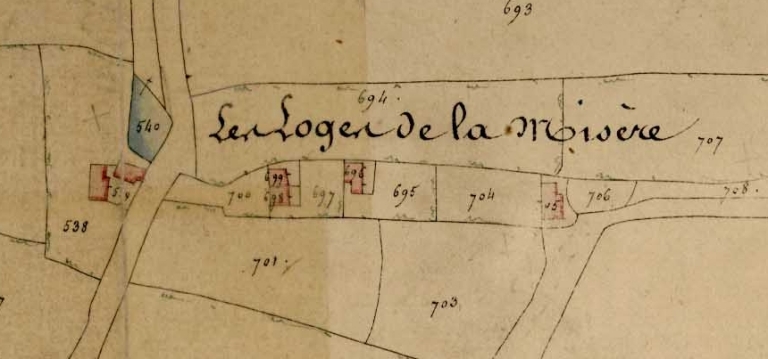 693
694.
Les Loges de la Misère
707
540
538
700
699
698
697
696
695
704
705
706
708.
701.
703